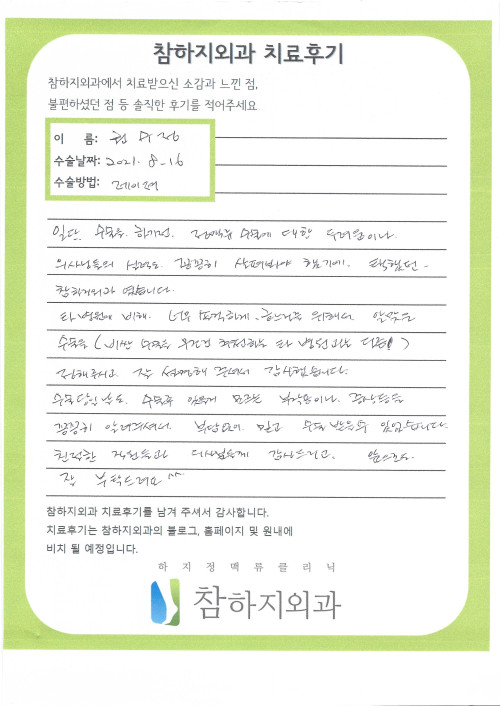 참하지외과 치료후기
참하지외과에서 치료받으신 소감과 느낀 점,
불편하셨던 점 등 솔직한 후기를 적어주세요
이 름:
수술날짜: 2021. 8-16
수술방법: 레이저
일단 수술을 하기전. 정맥류 수술에 대한 두려움이나
의사님들의 실력도 꼼꼼히 살펴봐야 했기에. 택했던 -
참하지외과 였습니다.
타 병원에 비해. 너무 정직하게. 환자를 위해서 알맞은
수술을 (비싼 수술을 무조건 추천하는 타 병원과는 다름!)
정해주시고 잘 설명해 주셔서 감사했습니다.
수술당일날도. 수술후 있을지 모르는 부작용이나. 증상들을
꼼꼼히 알려주셔서. 부담없이 믿고 수술 받을수 있었습니다.
친절한 직원분과 의사분들께 감사드리고. 앞으로도.
잘 부탁드려요 ^^
참하지외과 치료후기를 남겨 주셔서 감사합니다.
치료후기는 참하지외과의 블로그, 홈페이지 및 원내에
비치 될 예정입니다.
하지정맥류클리닉
참하지외과